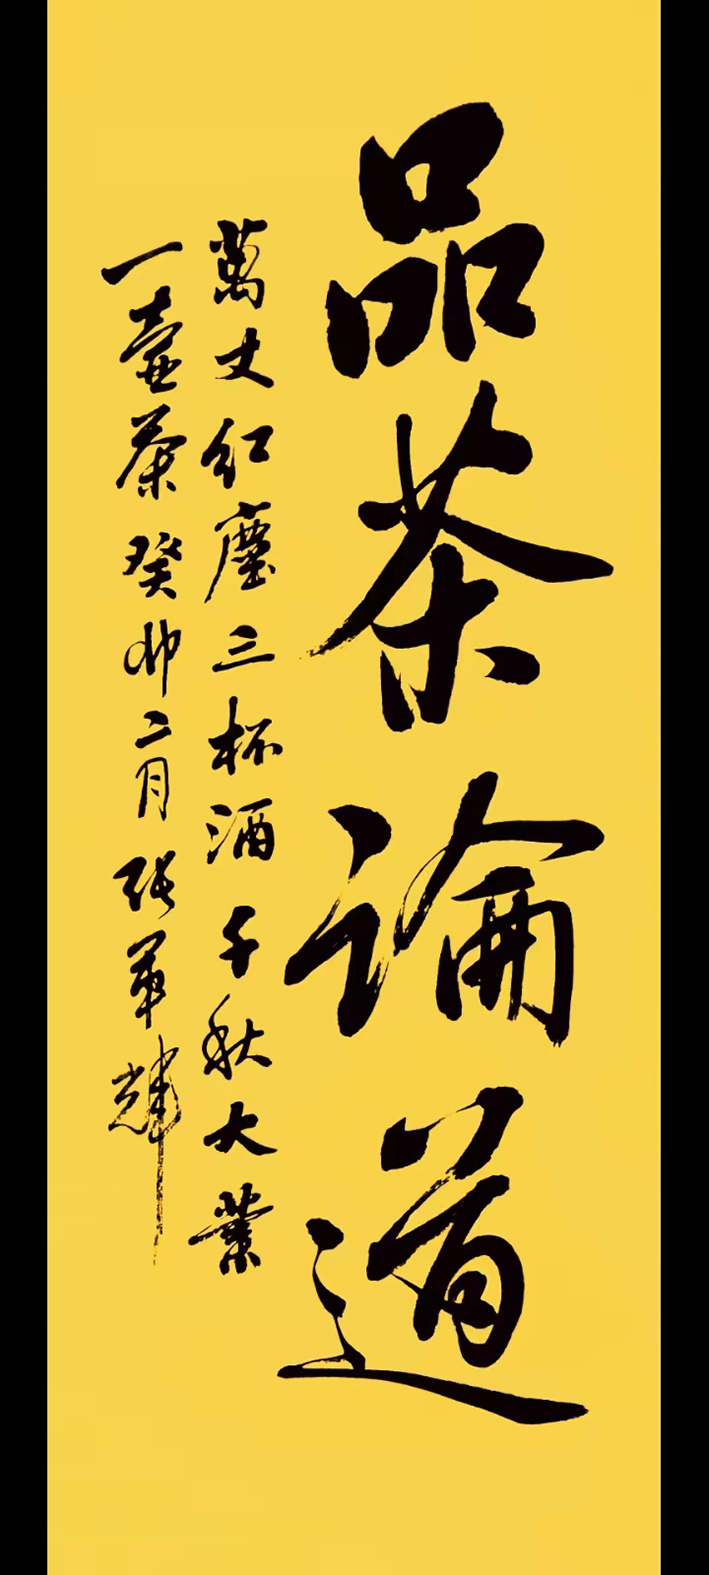 品茶論道
萬丈红塵三杯酒千秋大業
一壺茶癸卯二月张軍輝